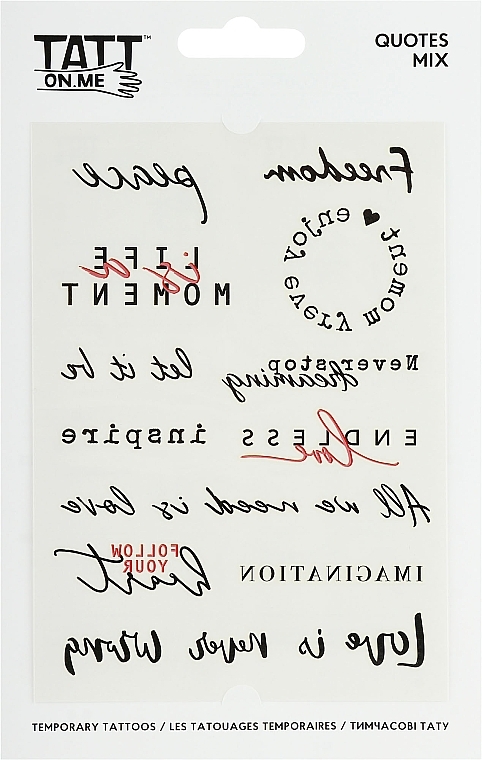 TATT™
ON.ME
QUOTES
MIX
peace
Freedom
LIFE
is a
MOMENT
enjoy every moment
let it be
Never stop
dreaming
inspire
ENDLESS
love
All we need is love
FOLLOW
YOUR
heart
IMAGINATION
Love is never wrong
TEMPORARY TATTOOS / LES TATOUAGES TEMPORAIRES / ТИМЧАСОВІ ТАТУ